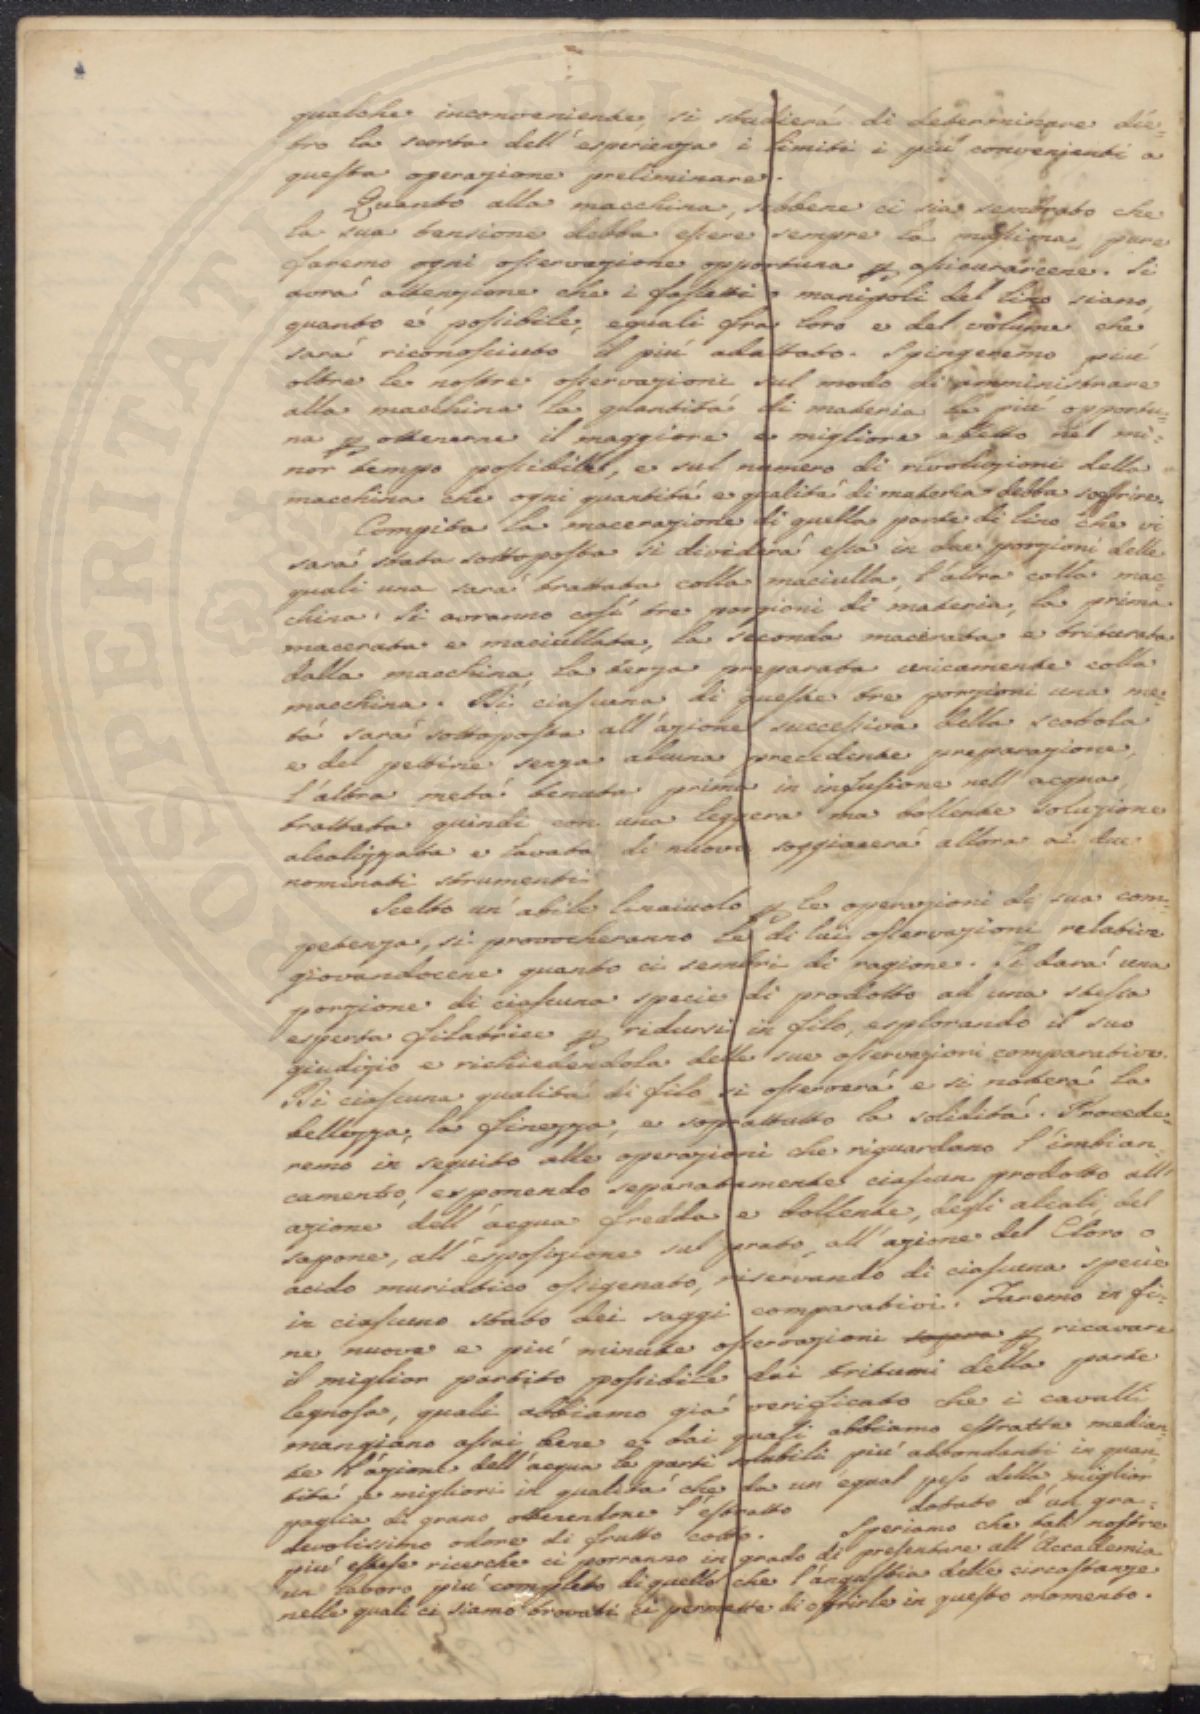 qualche inconveniente, si studierá di determinare die=
tro la scorta dell'esperienza i limiti i piú convenienti a
questa operazione preliminare.
Quanto alla macchina, sebbene ci sia sembrato che
la sua tensione debba essere sempre la massima, pure
faremo ogni osservazione opportuna p assicurarcene. Si
avrá attenzione che i fascetti o manipoli del lino siano,
quanto é possibile, eguali fra loro e del volume che
sará riconosciuto il piú adattato. Spingeremo piú
oltre le nostre osservazioni sul modo di amministrare
alla macchina la quantitá di materia la piú opportu=
na p ottenerne il maggiore e migliore effetto nel mi=
nor tempo possibile, e sul numero di rivoluzioni della
macchina che ogni quantitá e qualitá di materia debba soffrire.
Compita la macerazione di quella parte di lino che vi
sará stata sottoposta si dividerá essa in due porzioni delle
quali una sará trattata colla maciulla, l'altra colla mac=
china. Si avranno cosí tre porzioni di materia, la prima
macerata e maciullata, la seconda macerata e triturata
dalla macchina, la terza preparata unicamente colla
macchina. Di ciascuna di queste tre porzioni una me=
tá sará sottoposta all'azione successiva della scotola
e del pettine senza alcuna precedente preparazione,
l'altra metá tenuta prima in infusione nell'acqua
trattata quindi con una leggera ma bollente soluzione
alcalizzata e lavata di nuovo soggiacerá allora ai due
nominati strumenti.
Scelto un'abile linaiuolo p le operazioni di sua com=
petenza, si provocheranno le di lui osservazioni relative
giovandocene quanto ci sembri di ragione. Si dará una
porzione di ciascuna specie di prodotto ad una stessa
esperta filatrice p ridursi in filo, esplorando il suo
giudizio e richiedendola delle sue osservazioni comparative.
Di ciascuna qualitá di filo si osserverá e si noterá la
bellezza, la finezza, e soprattutto la soliditá. Procede=
remo in seguito alle operazioni che riguardano l'imbian=
camento, esponendo separatamente ciascun prodotto all'
azione dell'acqua fredda e bollente, degli alcali, del
sapone, all'esposizione sul prato, all'azione del Cloro o
acido muriatico ossigenato, riservando di ciascuna specie
in ciascuno stato dei saggi comparativi. Faremo in fi=
ne nuove e piú minute osservazioni sopra p ricavare
il miglior partito possibile dai tritumi della parte
legnosa, quali abbiamo giá verificato che i cavalli
mangiano assai bene e dai quali abbiamo estratte median=
te l'azione dell'acqua le parti solubili piú abbondanti in quan=
titá e migliori in qualitá che da un egual peso della miglior
paglia di grano ottenendone l'estratto dotato d'un gra=
devolissimo odore di frutto cotto. Speriamo che tali nostre
piú estese ricerche ci porranno in grado di presentare all'Accademia
un lavoro piú completo di quello che l'angustia delle circostanze
nelle quali ci siamo trovati ci permette di offrirle in questo momento.
PROSPERITATI PUBLICAE